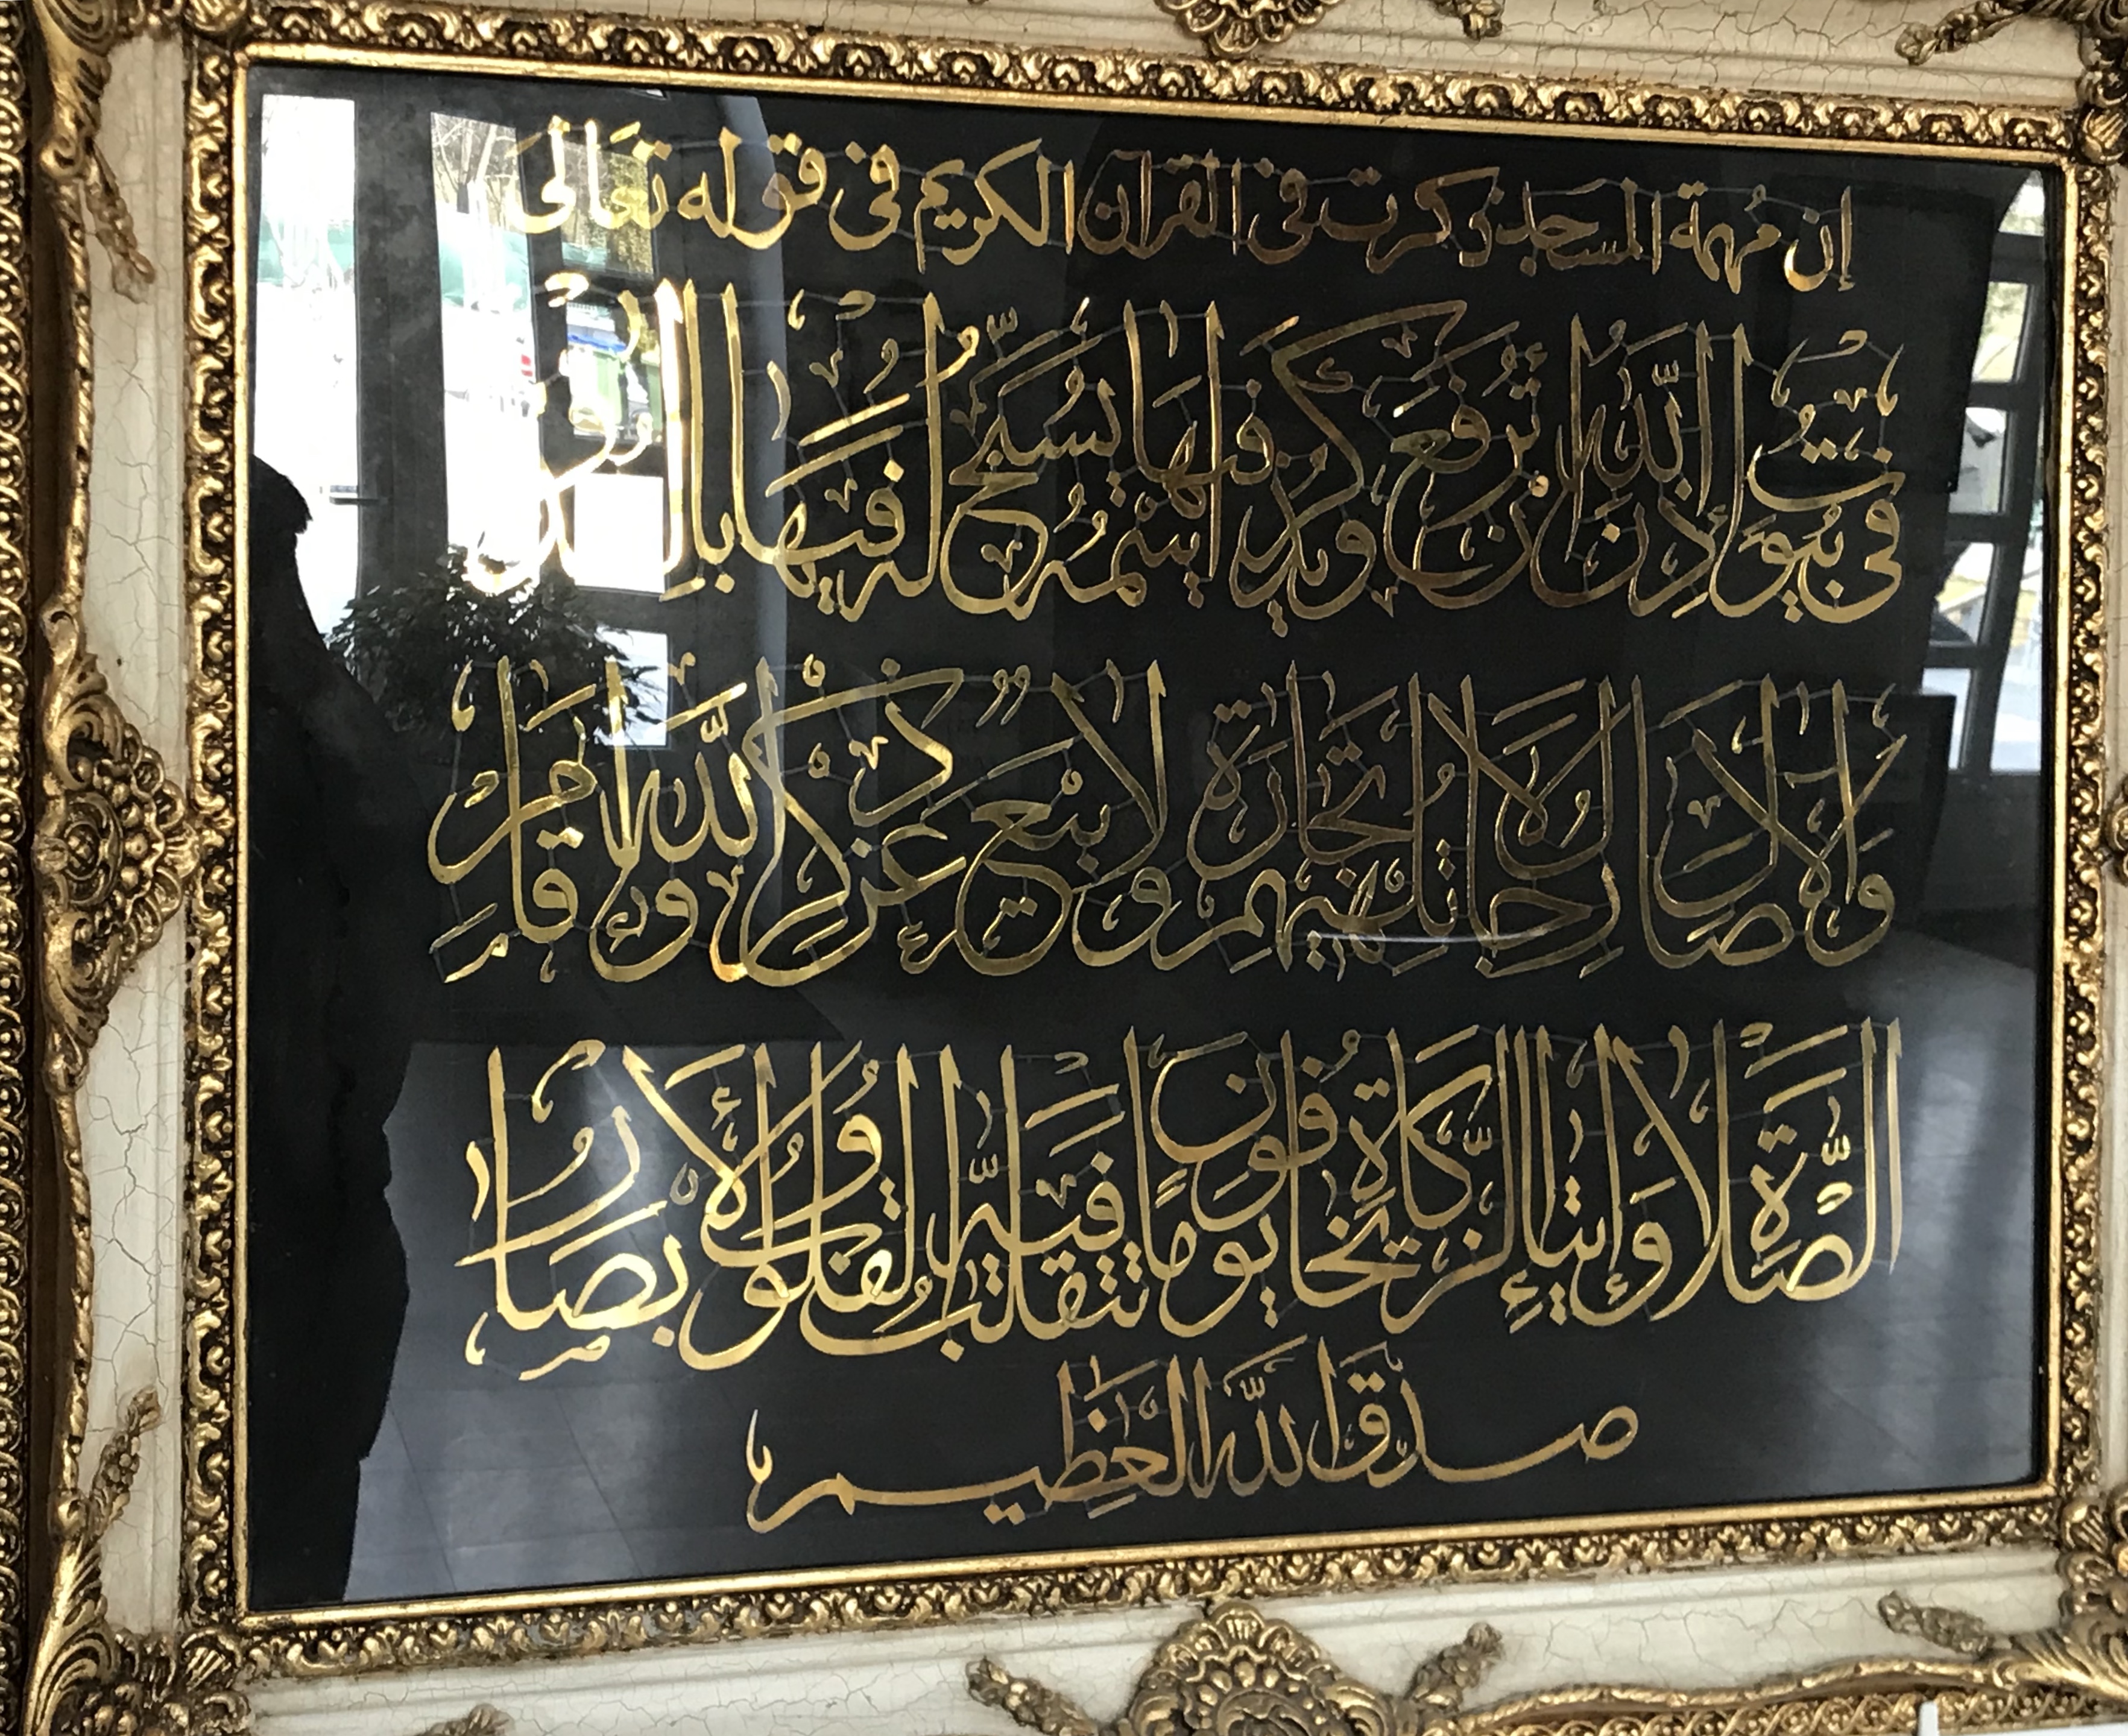 إن مهمة المسجد ذكرت في القرآن الكريم في قوله تعالى
في بيوت أذن الله أن ترفع ويذكر فيها اسمه يسبح له فيها بالغدو
والآصال رجال لا تلهيهم تجارة ولا بيع عن ذكر الله وإقام
الصلاة وإيتاء الزكاة يخافون يوما تتقلب فيه القلوب والأبصار
صدق الله العظيم